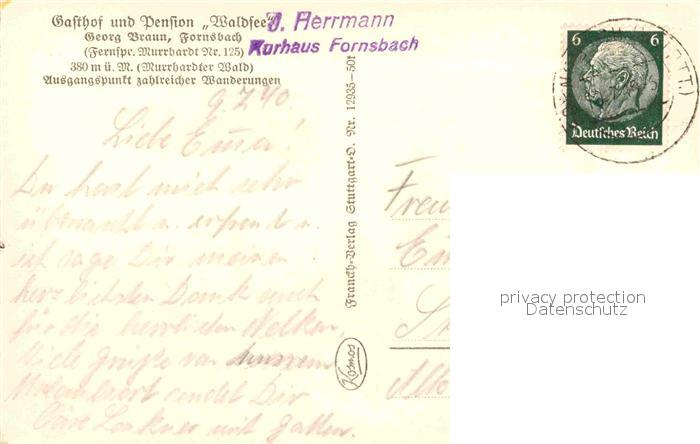 Gasthof und Pension „Waldsee"
Georg Braun, Fornsbach
(Fernspr. Murrhardt Nr. 125)
380 m ü. M. (Murrhardter Wald)
Ausgangspunkt zahlreicher Wanderungen
J. Herrmann
Kurhaus Fornsbach
6 6
Deutsches Reich
9.7.40.
Liebe Emma!
Du hast mich sehr
überrascht u. erfreut u.
ich sage Dir meinen
herzlichsten Dank auch
für die herrlichen Nelken,
Viele Grüße von unserem
sendet Dir
mit Gatten.
Franckh-Verlag Stuttgart-O. Nr. 12935-50t
Kosmos
Frau
privacy protection
Datenschutz